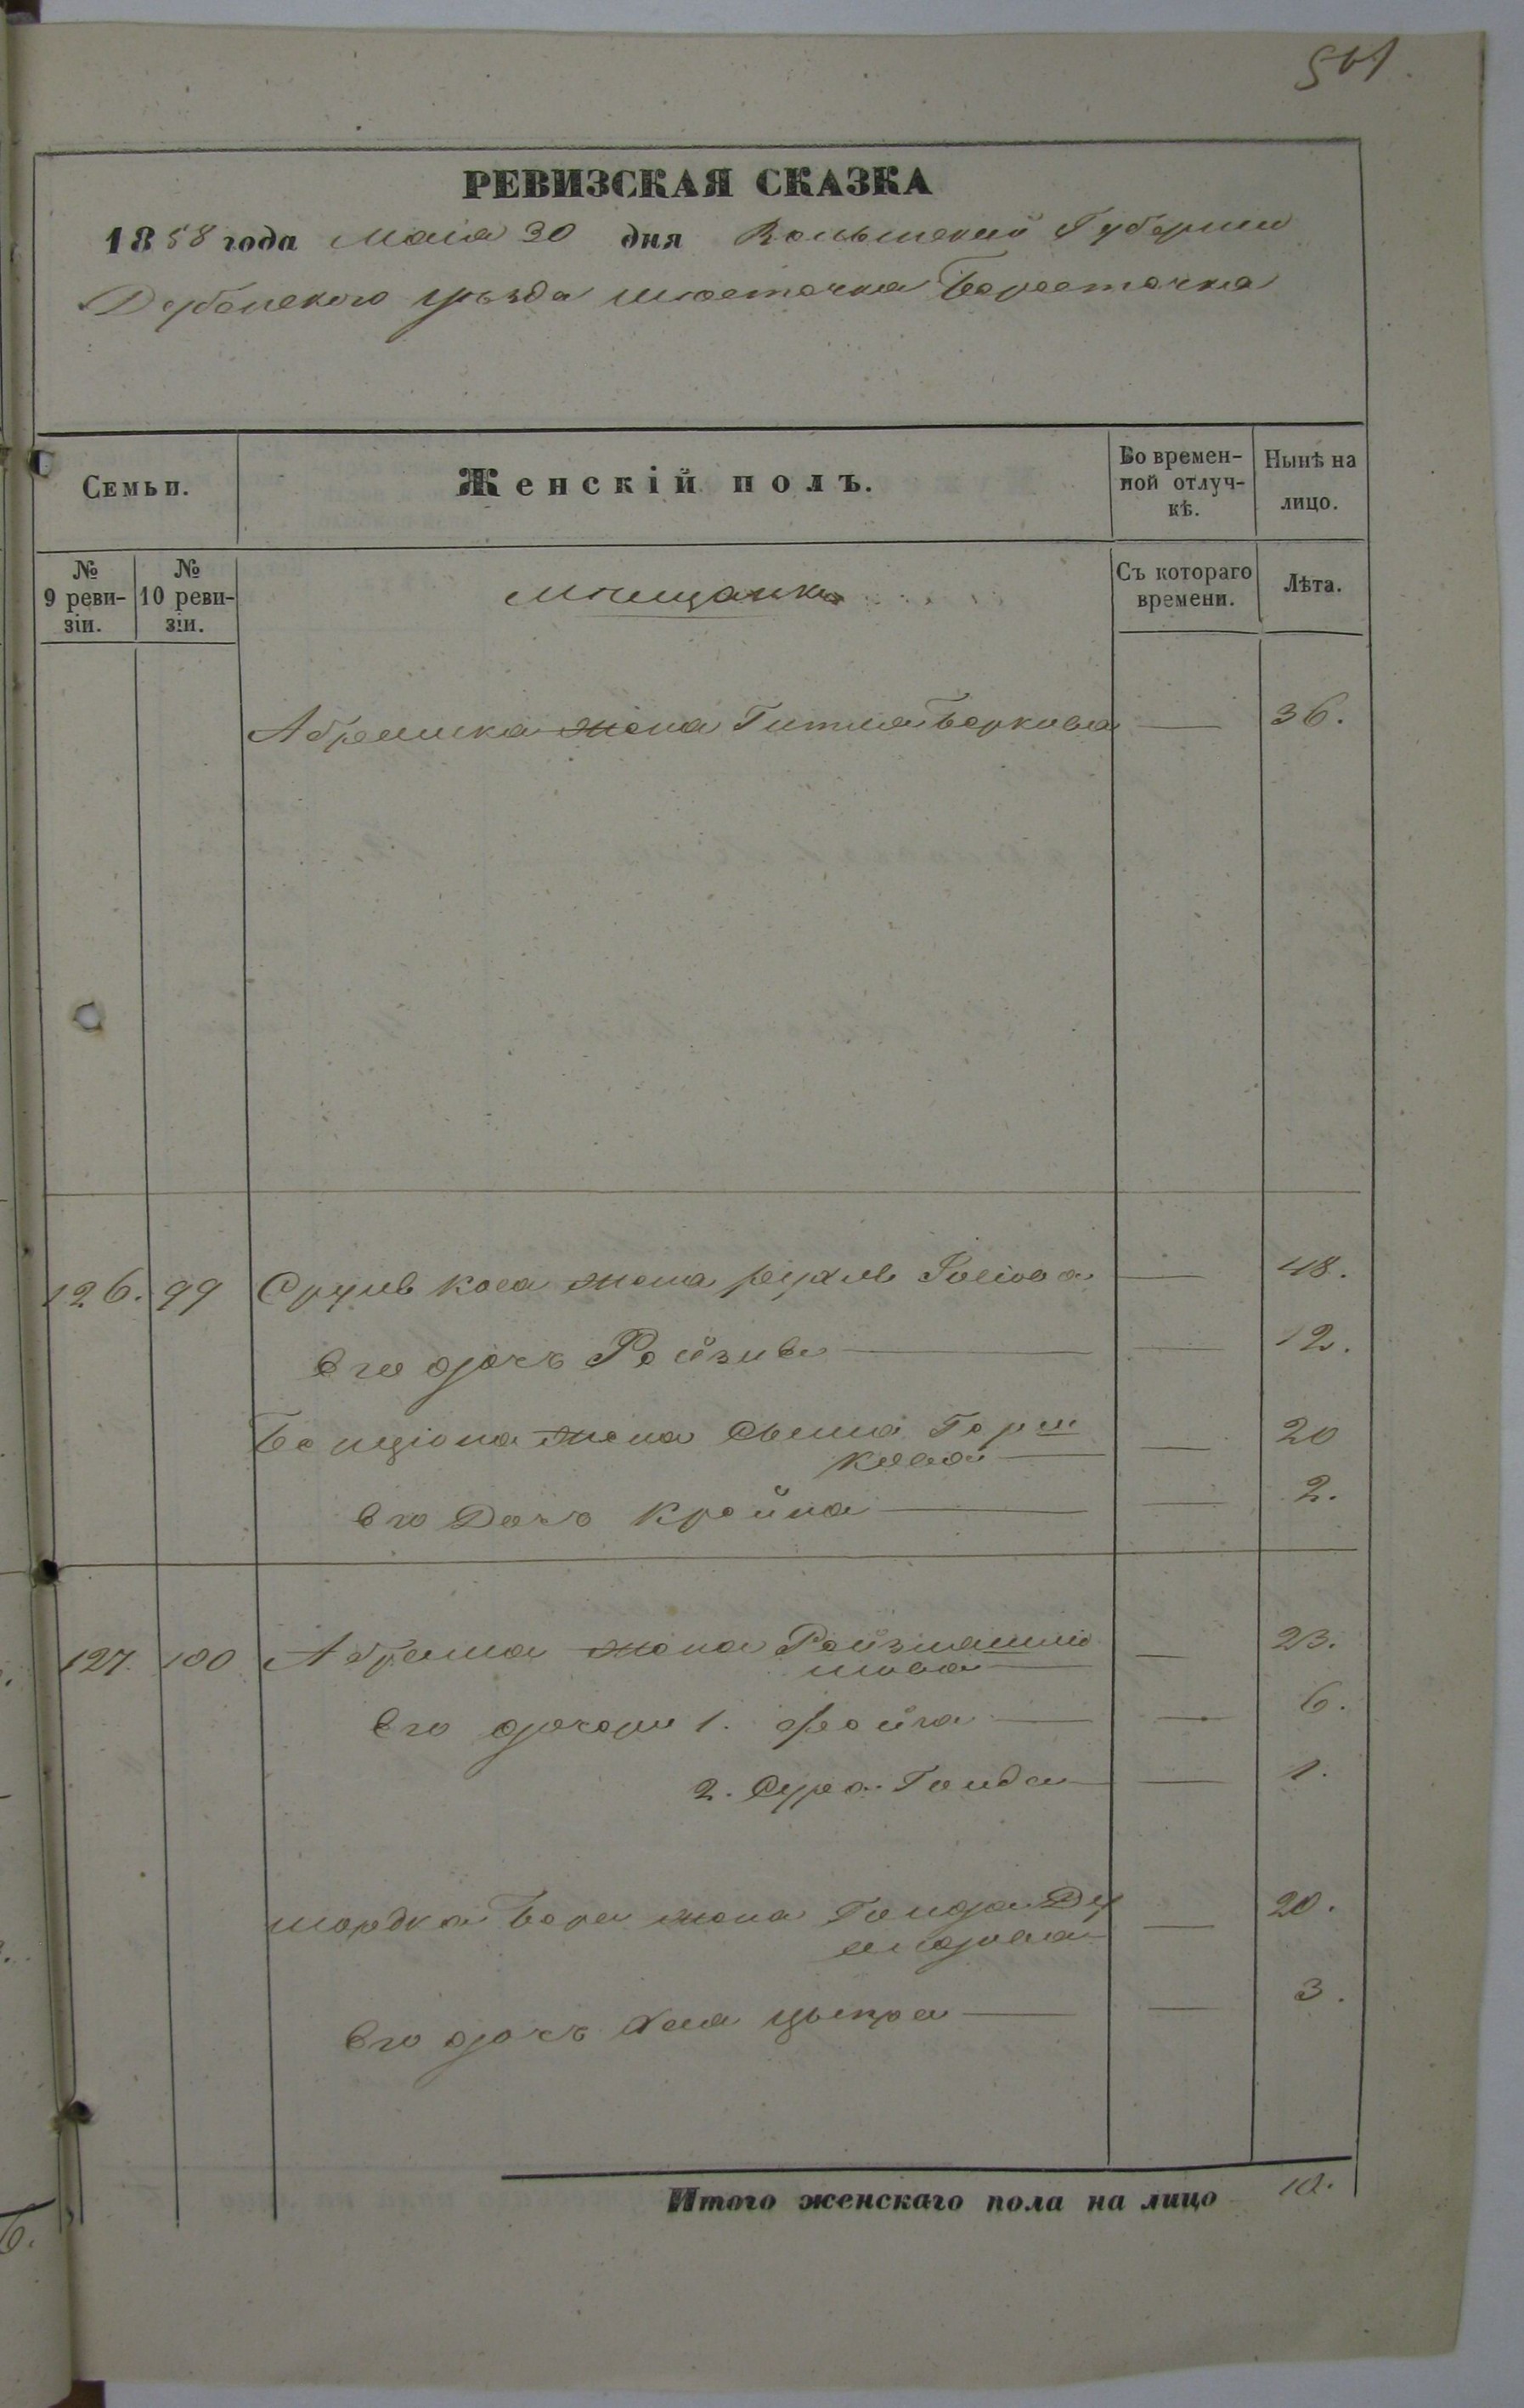 501.
РЕВИЗСКАЯ СКАЗКА
1858 года Маія 30 дня Волынской Губерніи
Дубенского уѣзда мѣстечка Берестечка
Семьи.
Женскій полъ.
Во времен-
ной отлуч-
кѣ.
Нынѣ на
лицо.
№
9 реви-
зіи.
№
10 реви-
зіи.
Мѣщанки
Съ котораго
времени.
Лѣта.
Абрамика жена Гитля Беркова — 36.
126. 99 Сруль жена Рухль — 48.
Его дочь Рейзив — 12.
Бенціона жена Сыма Герш
кова — 20
Его Дочь Крейна — 2.
127. 100 Абрама жена
мова — 23.
Его дочери 1. Фейга — 6.
2. Сура Генда — 1.
Мордка Бера жена Генда Ду
видова — 20.
Его дочь Хая Ципра — 3.
Итого женскаго пола на лицо 10.